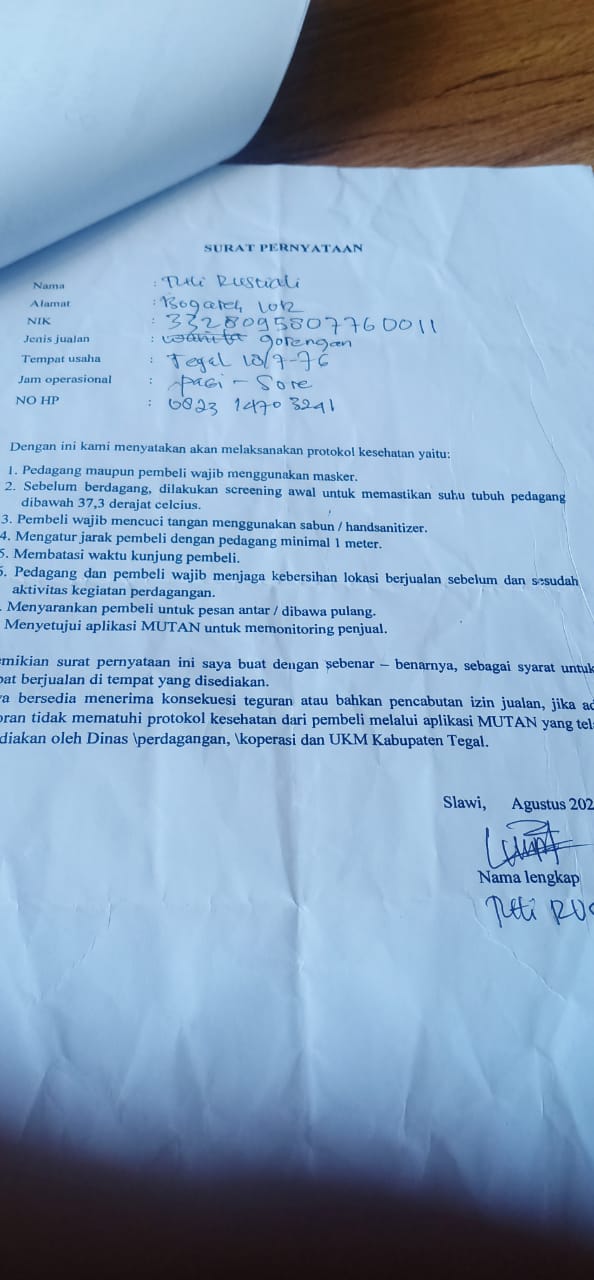 SURAT PERNYATAAN
Nama : Tuti Rustiati
Alamat : Bogares Lor
NIK : 3328095807760011
Jenis jualan : wanita gorengan
Tempat usaha : Tegal 18/7-76
Jam operasional : pagi - Sore
NO HP : 0823 1470 3241
Dengan ini kami menyatakan akan melaksanakan protokol kesehatan yaitu:
1. Pedagang maupun pembeli wajib menggunakan masker.
2. Sebelum berdagang, dilakukan screening awal untuk memastikan suhu tubuh pedagang
dibawah 37,3 derajat celcius.
3. Pembeli wajib mencuci tangan menggunakan sabun / handsanitizer.
4. Mengatur jarak pembeli dengan pedagang minimal 1 meter.
5. Membatasi waktu kunjung pembeli.
6. Pedagang dan pembeli wajib menjaga kebersihan lokasi berjualan sebelum dan sesudah
aktivitas kegiatan perdagangan.
. Menyarankan pembeli untuk pesan antar / dibawa pulang.
Menyetujui aplikasi MUTAN untuk memonitoring penjual.
mikian surat pernyataan ini saya buat dengan sebenar – benarnya, sebagai syarat untuk
pat berjualan di tempat yang disediakan.
ya bersedia menerima konsekuesi teguran atau bahkan pencabutan izin jualan, jika ad
oran tidak mematuhi protokol kesehatan dari pembeli melalui aplikasi MUTAN yang tel
diakan oleh Dinas \perdagangan, \koperasi dan UKM Kabupaten Tegal.
Slawi, Agustus 202
Nama lengkap
Tuti RUS